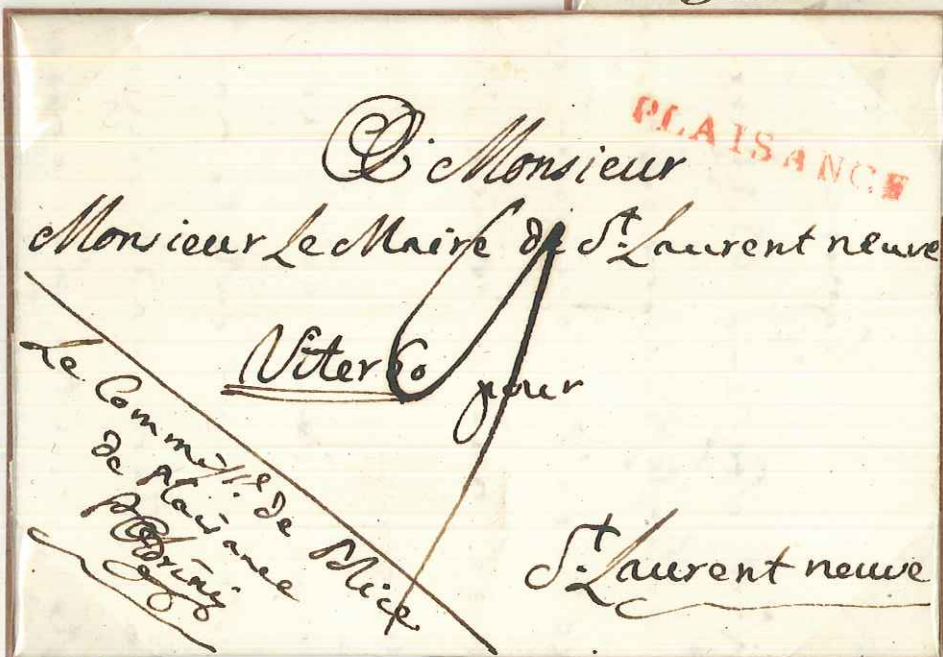 PLAISANCE
A Monsieur
Monsieur Le Maire de St. Laurent neuve
Viterbo pour
St. Laurent neuve
Le Commissre de Police
de plaisance